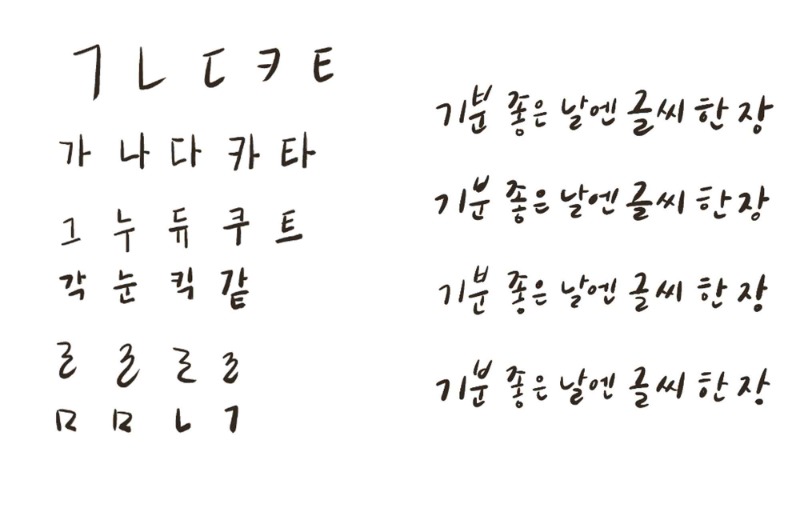 ㄱ ㄴ ㄷ ㅋ ㅌ
가 나 다 카 타
그 누 듀 쿠 트
각 눈 킥 같
ㄹ ㄹ ㄹ ㄹ
ㅁ ㅁ ㄴ ㄱ
기분 좋은 날엔 글씨 한 장
기분 좋은 날엔 글씨 한 장
기분 좋은 날엔 글씨 한 장
기분 좋은 날엔 글씨 한 장